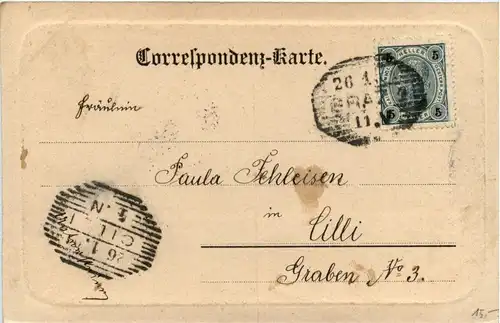 Correspondenz-Karte.
5 HELLER 5
5 5
26 1
GRAZ
11.
Fräulein
Paula Schleisen
in
Cilli
Graben No 3.
CILLI
26 1
15.-